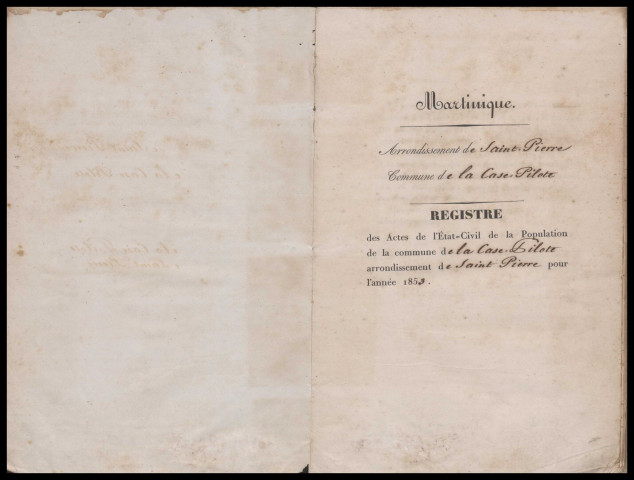 Martinique.
Arrondissement de Saint-Pierre
Commune de la Case-Pilote
REGISTRE
des Actes de l'État-Civil de la Population
de la commune de la Case-Pilote
arrondissement de Saint Pierre pour
l'année 1853.